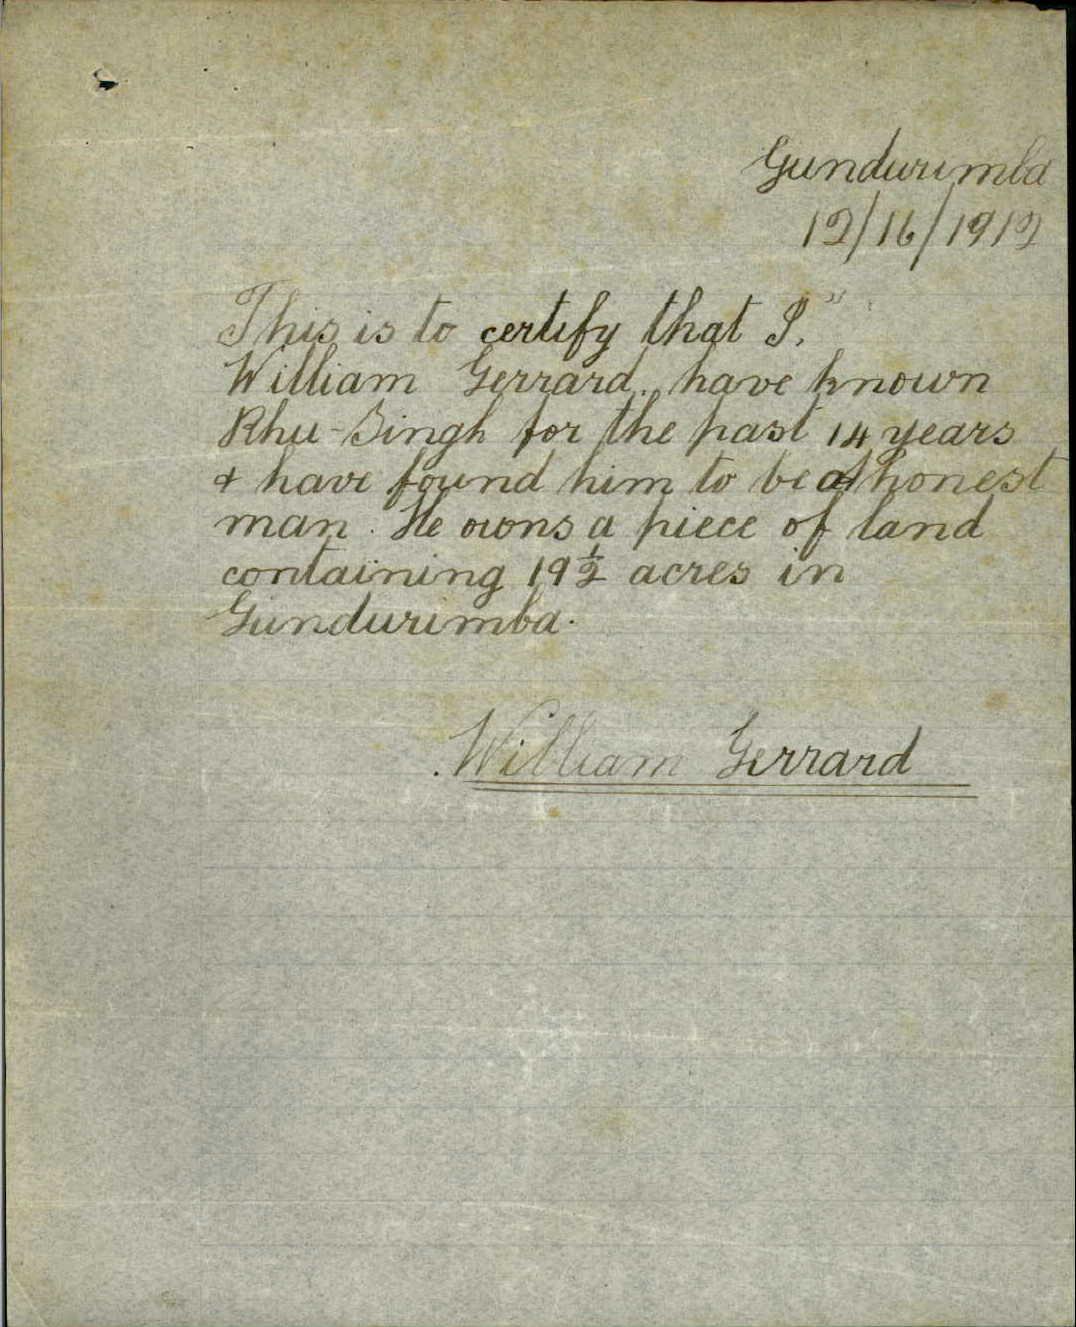 Gundurimba
12/16/1912
This is to certify that I,"
William Gerrard, have known
Rhu-Singh for the past 14 years
& have found him to be a honest
man. He owns a piece of land
containing 19½ acres in
Gundurimba.
William Gerrard